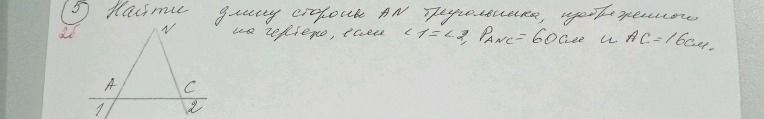 5 Найти длину стороны AN треугольника, изображенного
2б на чертеже, если ∠1=∠2, P_ANC=60см и AC=16см.
N
A C
1 2